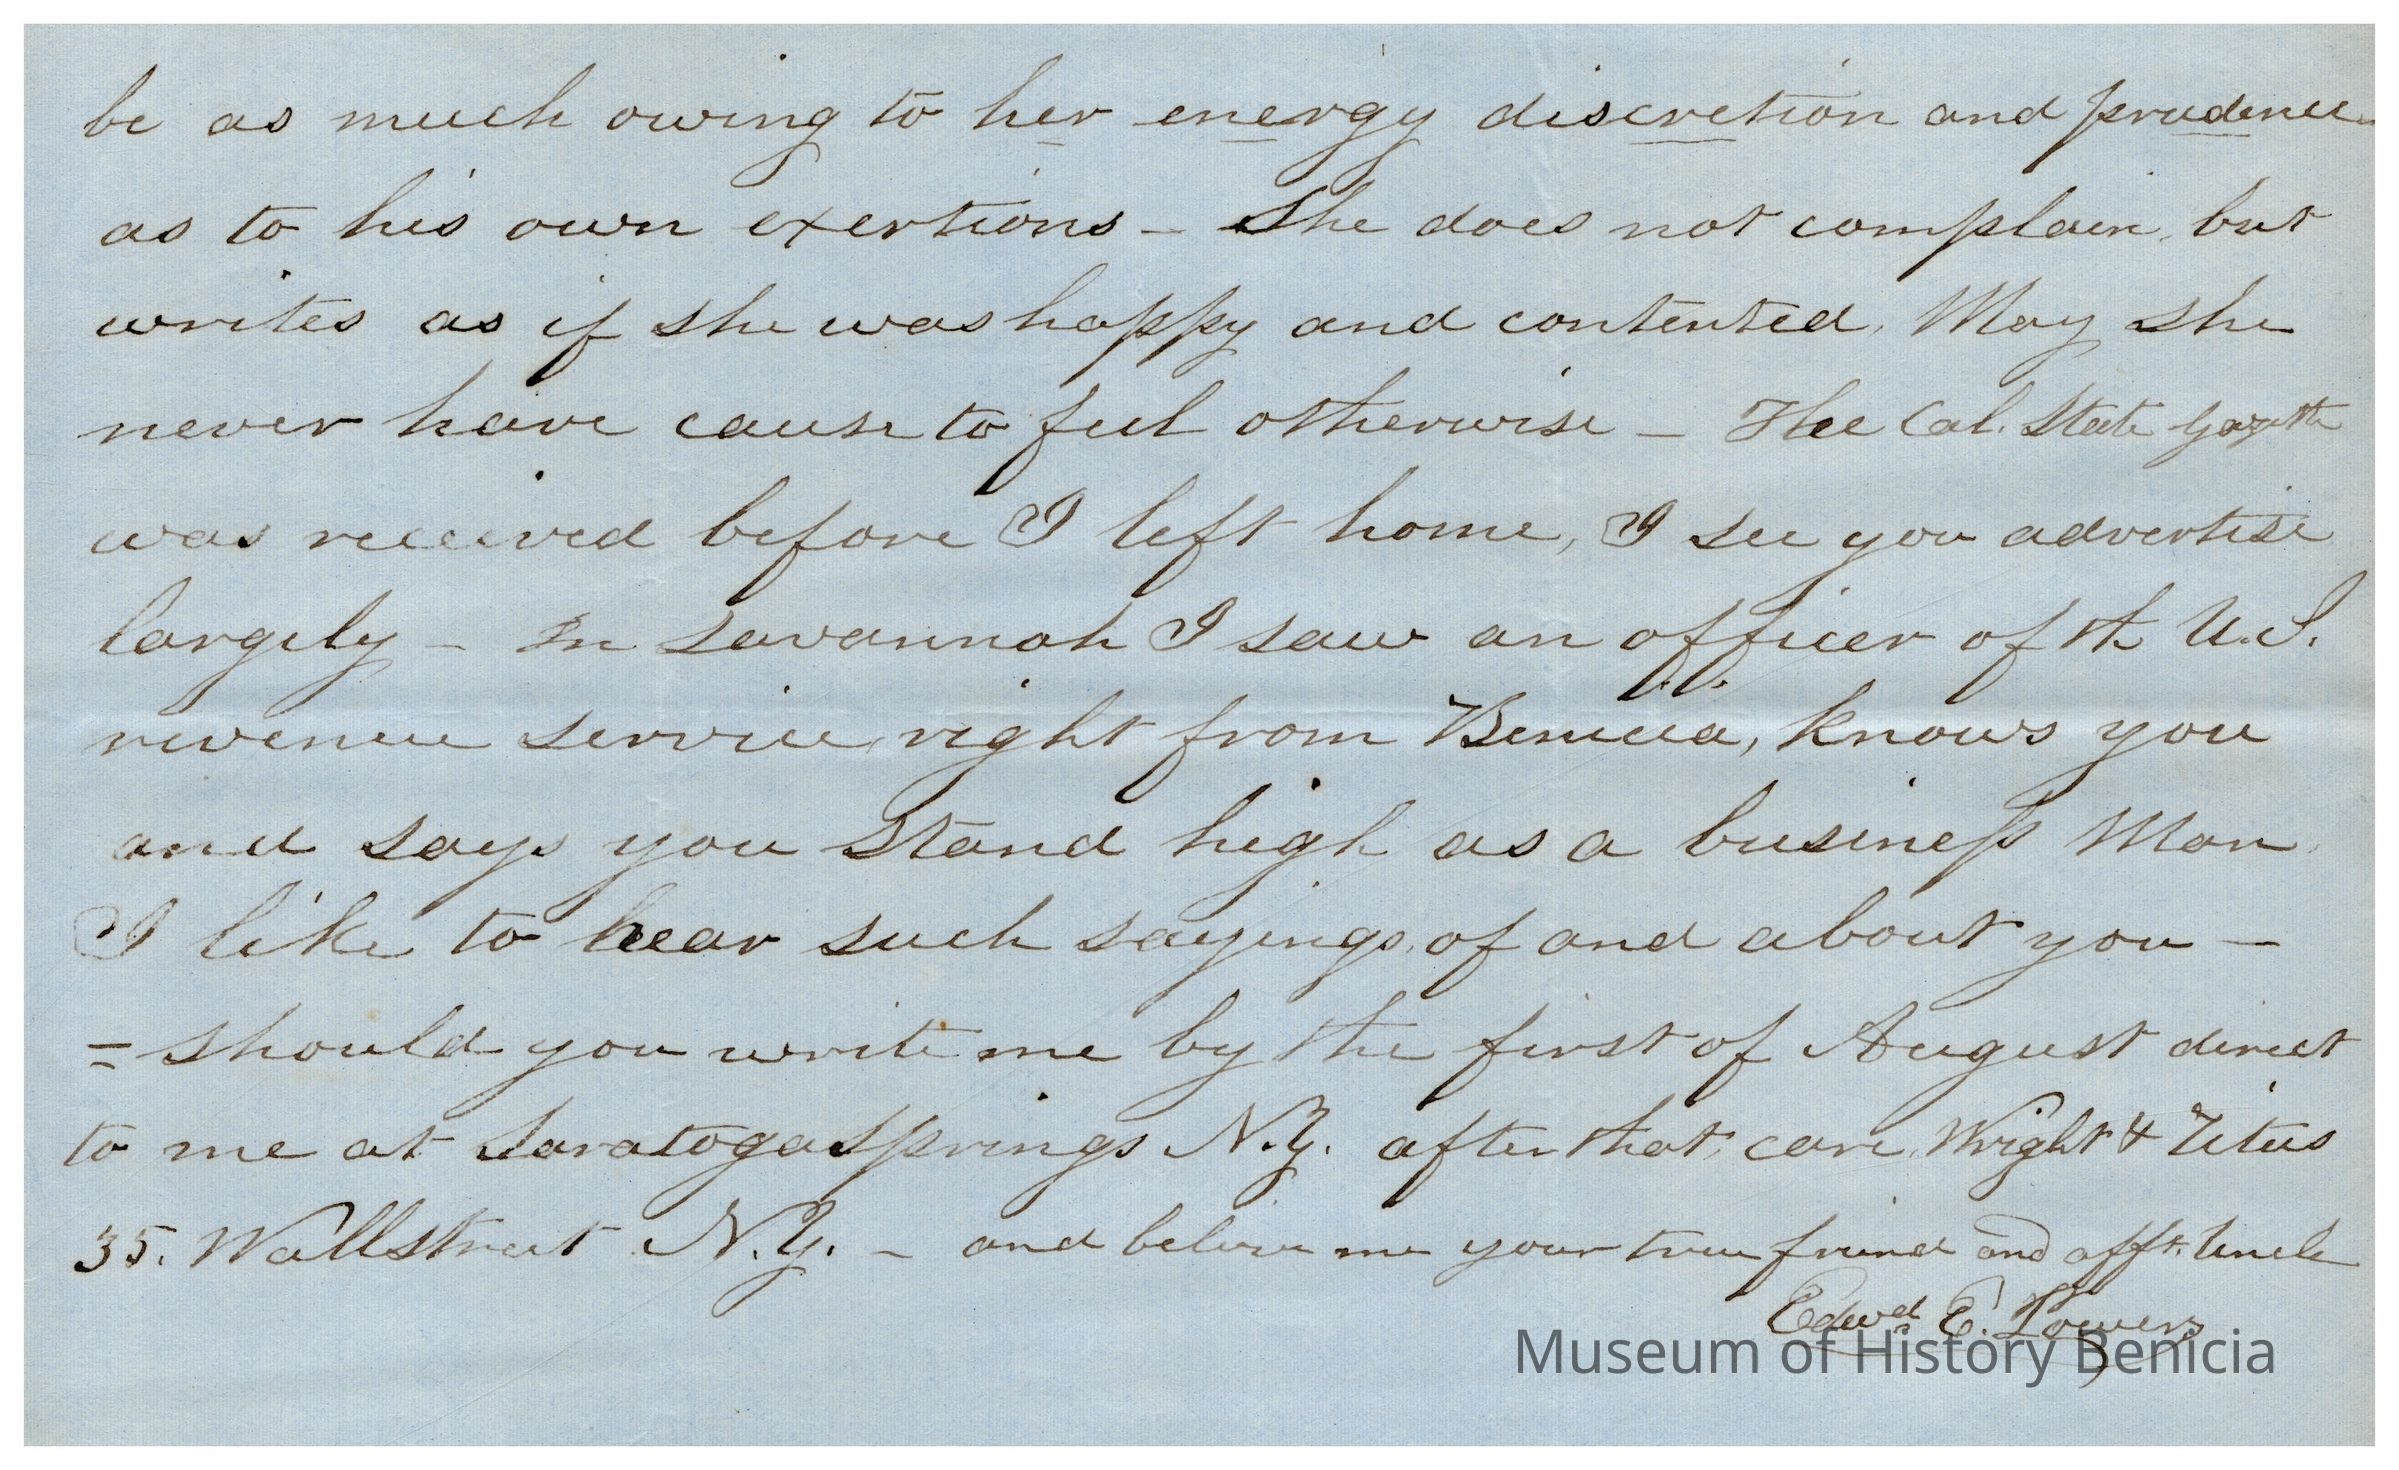 be as much owing to her energy discretion and prudence
as to his own exertions - She does not complain, but
writes as if she was happy and contented, May she
never have cause to feel otherwise - The Cal. State Gazette
was received before I left home, I see you advertise
largely - In Savannah I saw an officer of th U.S.
revenue service, right from Benicia, knows you
and says you stand high as a business Man,
I like to hear such sayings, of and about you -
= should you write me by the first of August direct
to me at Saratoga Springs N.Y. after that, care, Wright & Titus
35. Wallstreet N.Y. - and believe me your true friend and afft. Uncle
Edwd E. Powers
Museum of History Benicia